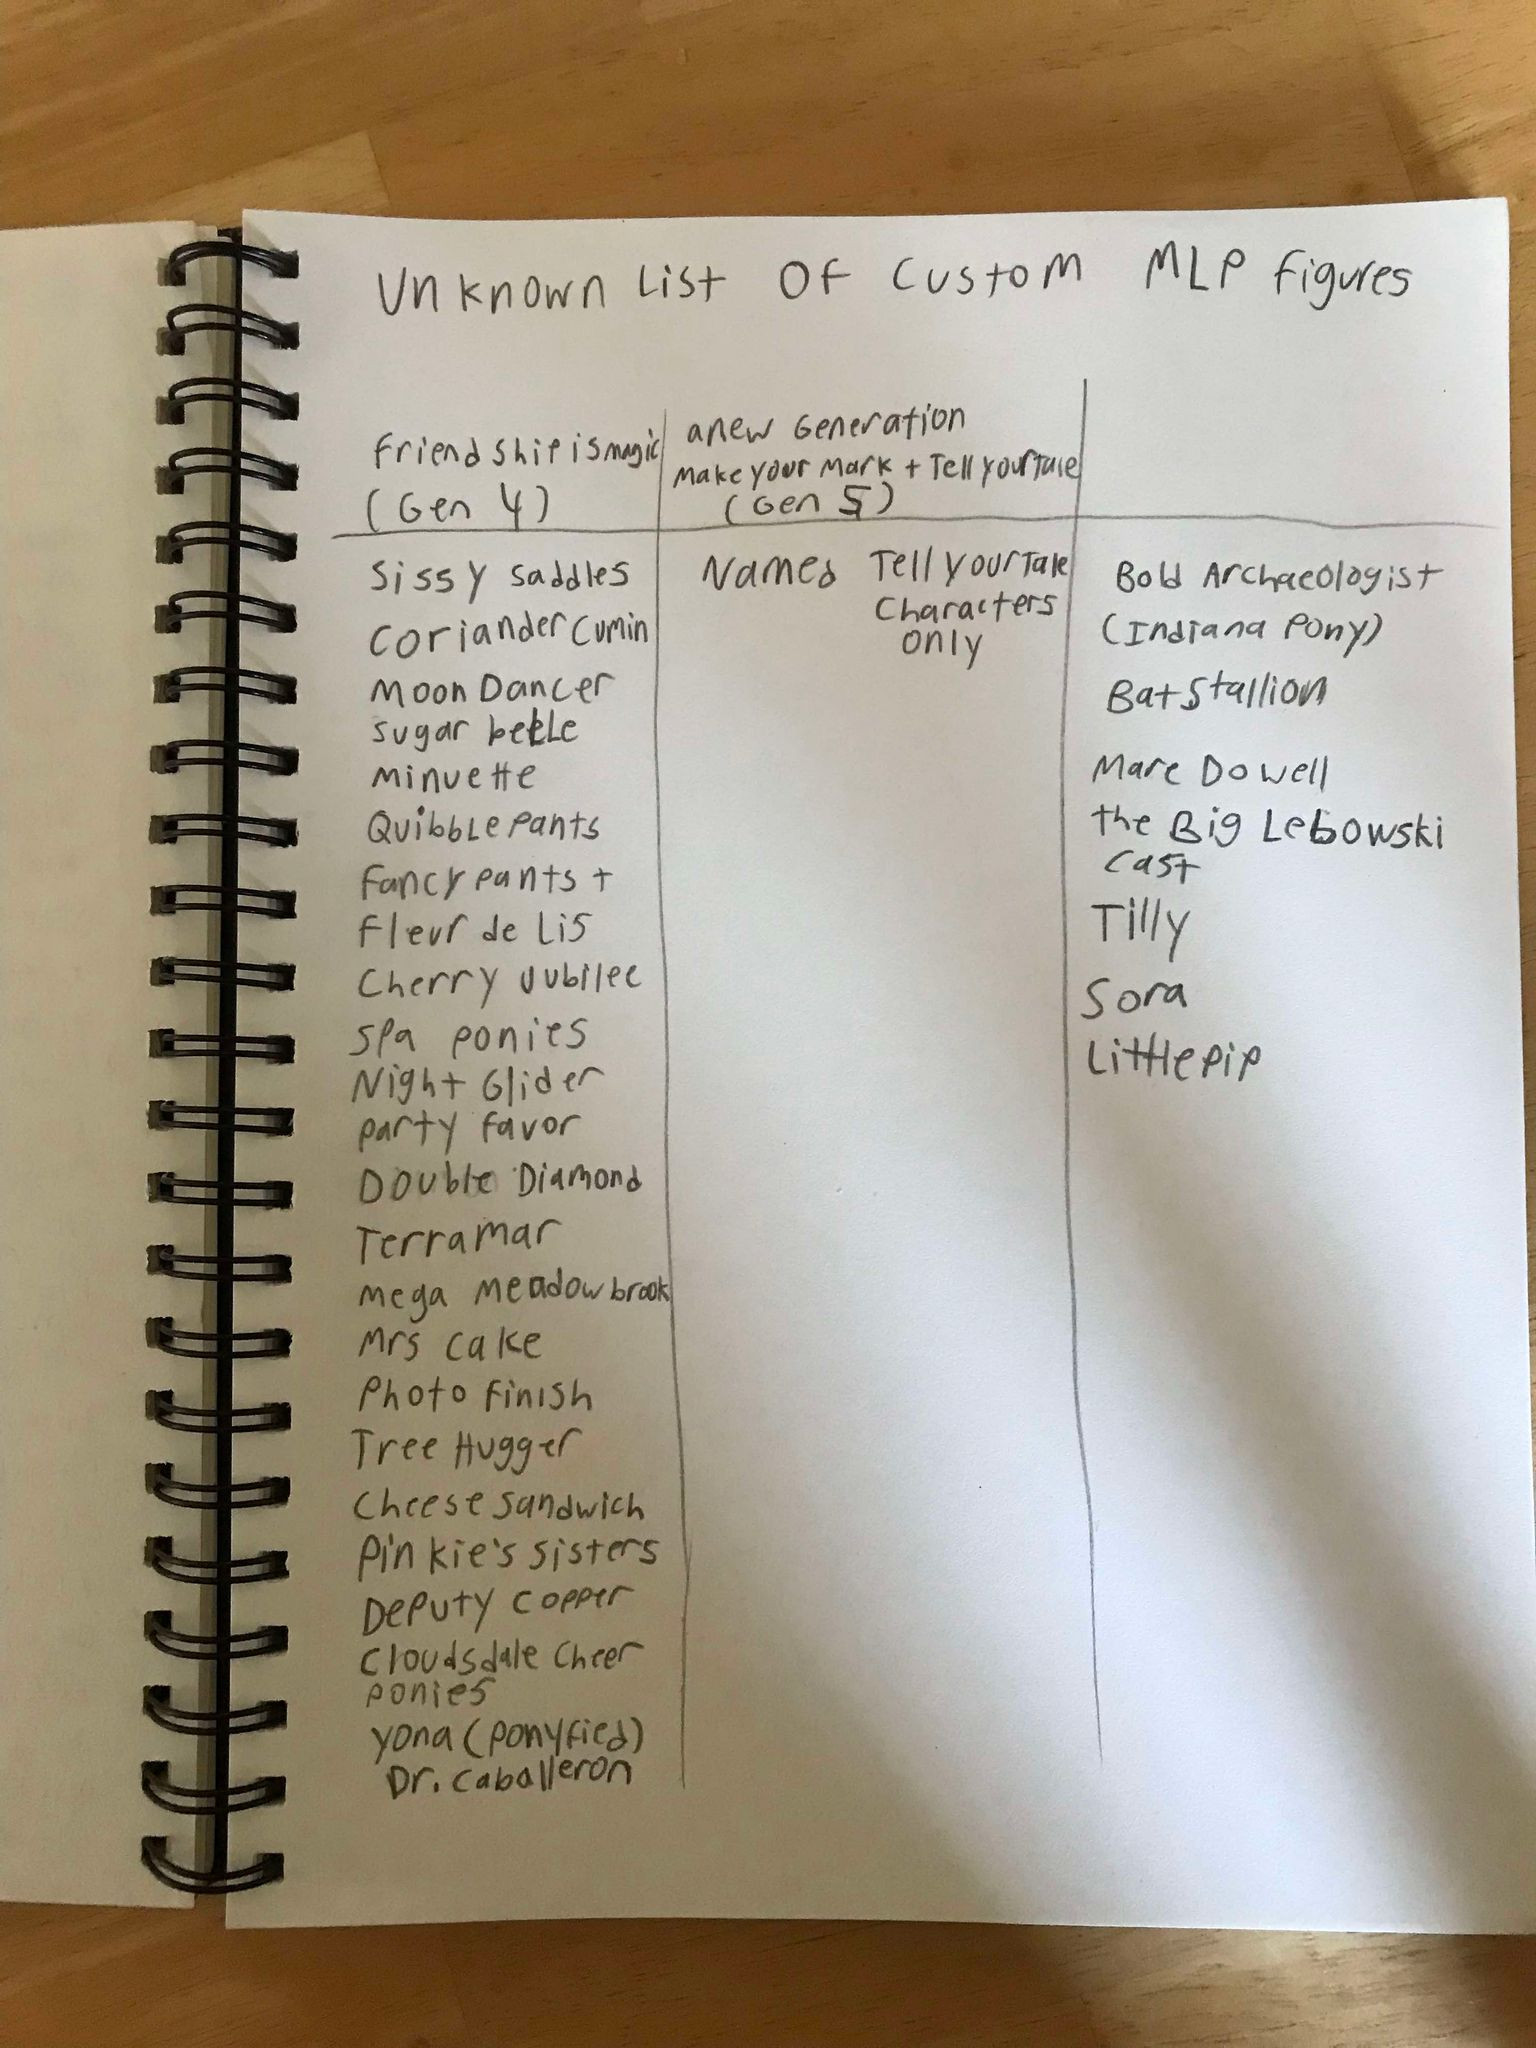 Unknown List OF Custom MLP figures
Friendship is magic
(Gen 4)
a new Generation
Make your Mark + Tell your Tale
(Gen 5)
Sissy saddles
Coriander Cumin
Moon Dancer
Sugar belle
Minuette
Quibble pants
Fancy pants +
Fleur de Lis
Cherry Jubilee
Spa ponies
Night Glider
party favor
Double Diamond
Terramar
Mega Meadowbrook
Mrs Cake
Photo Finish
Tree Hugger
Cheese Sandwich
Pinkie's sisters
Deputy Copper
Cloudsdale Cheer
ponies
Yona (ponyfied)
Dr. Caballeron
Named Tell your Tale
Characters
only
Bold Archaeologist
(Indiana Pony)
Bat Stallion
Mare Dowell
the Big Lebowski
Cast
Tilly
Sora
Littlepip